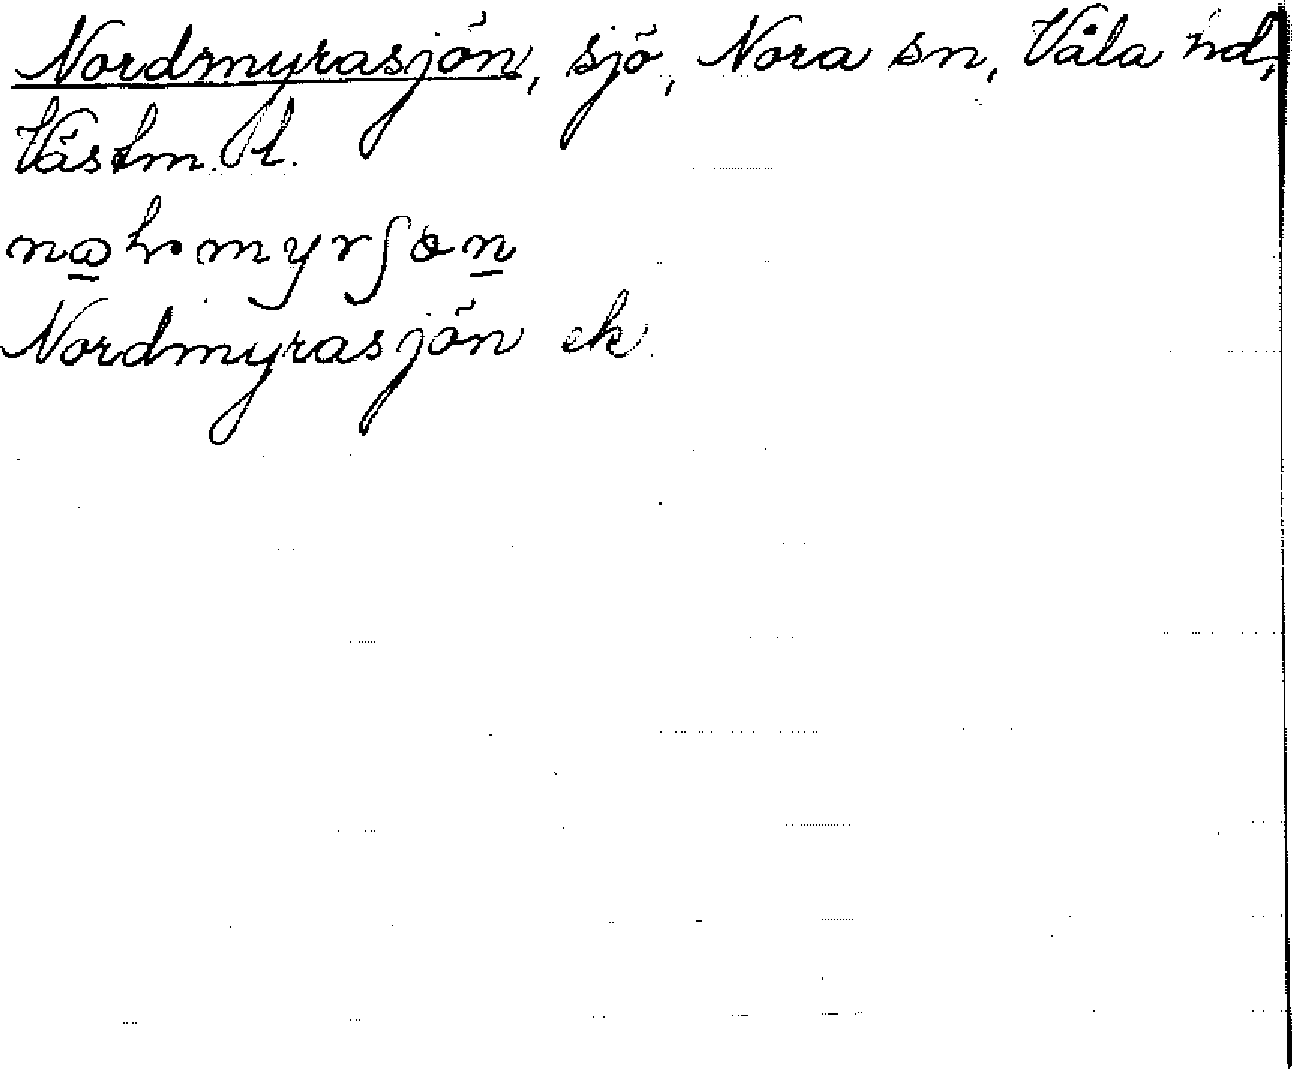 Nordmyrasjön, sjö, Nora sn, Våla hd,
Västm. l.
Nordmyrasjön ek